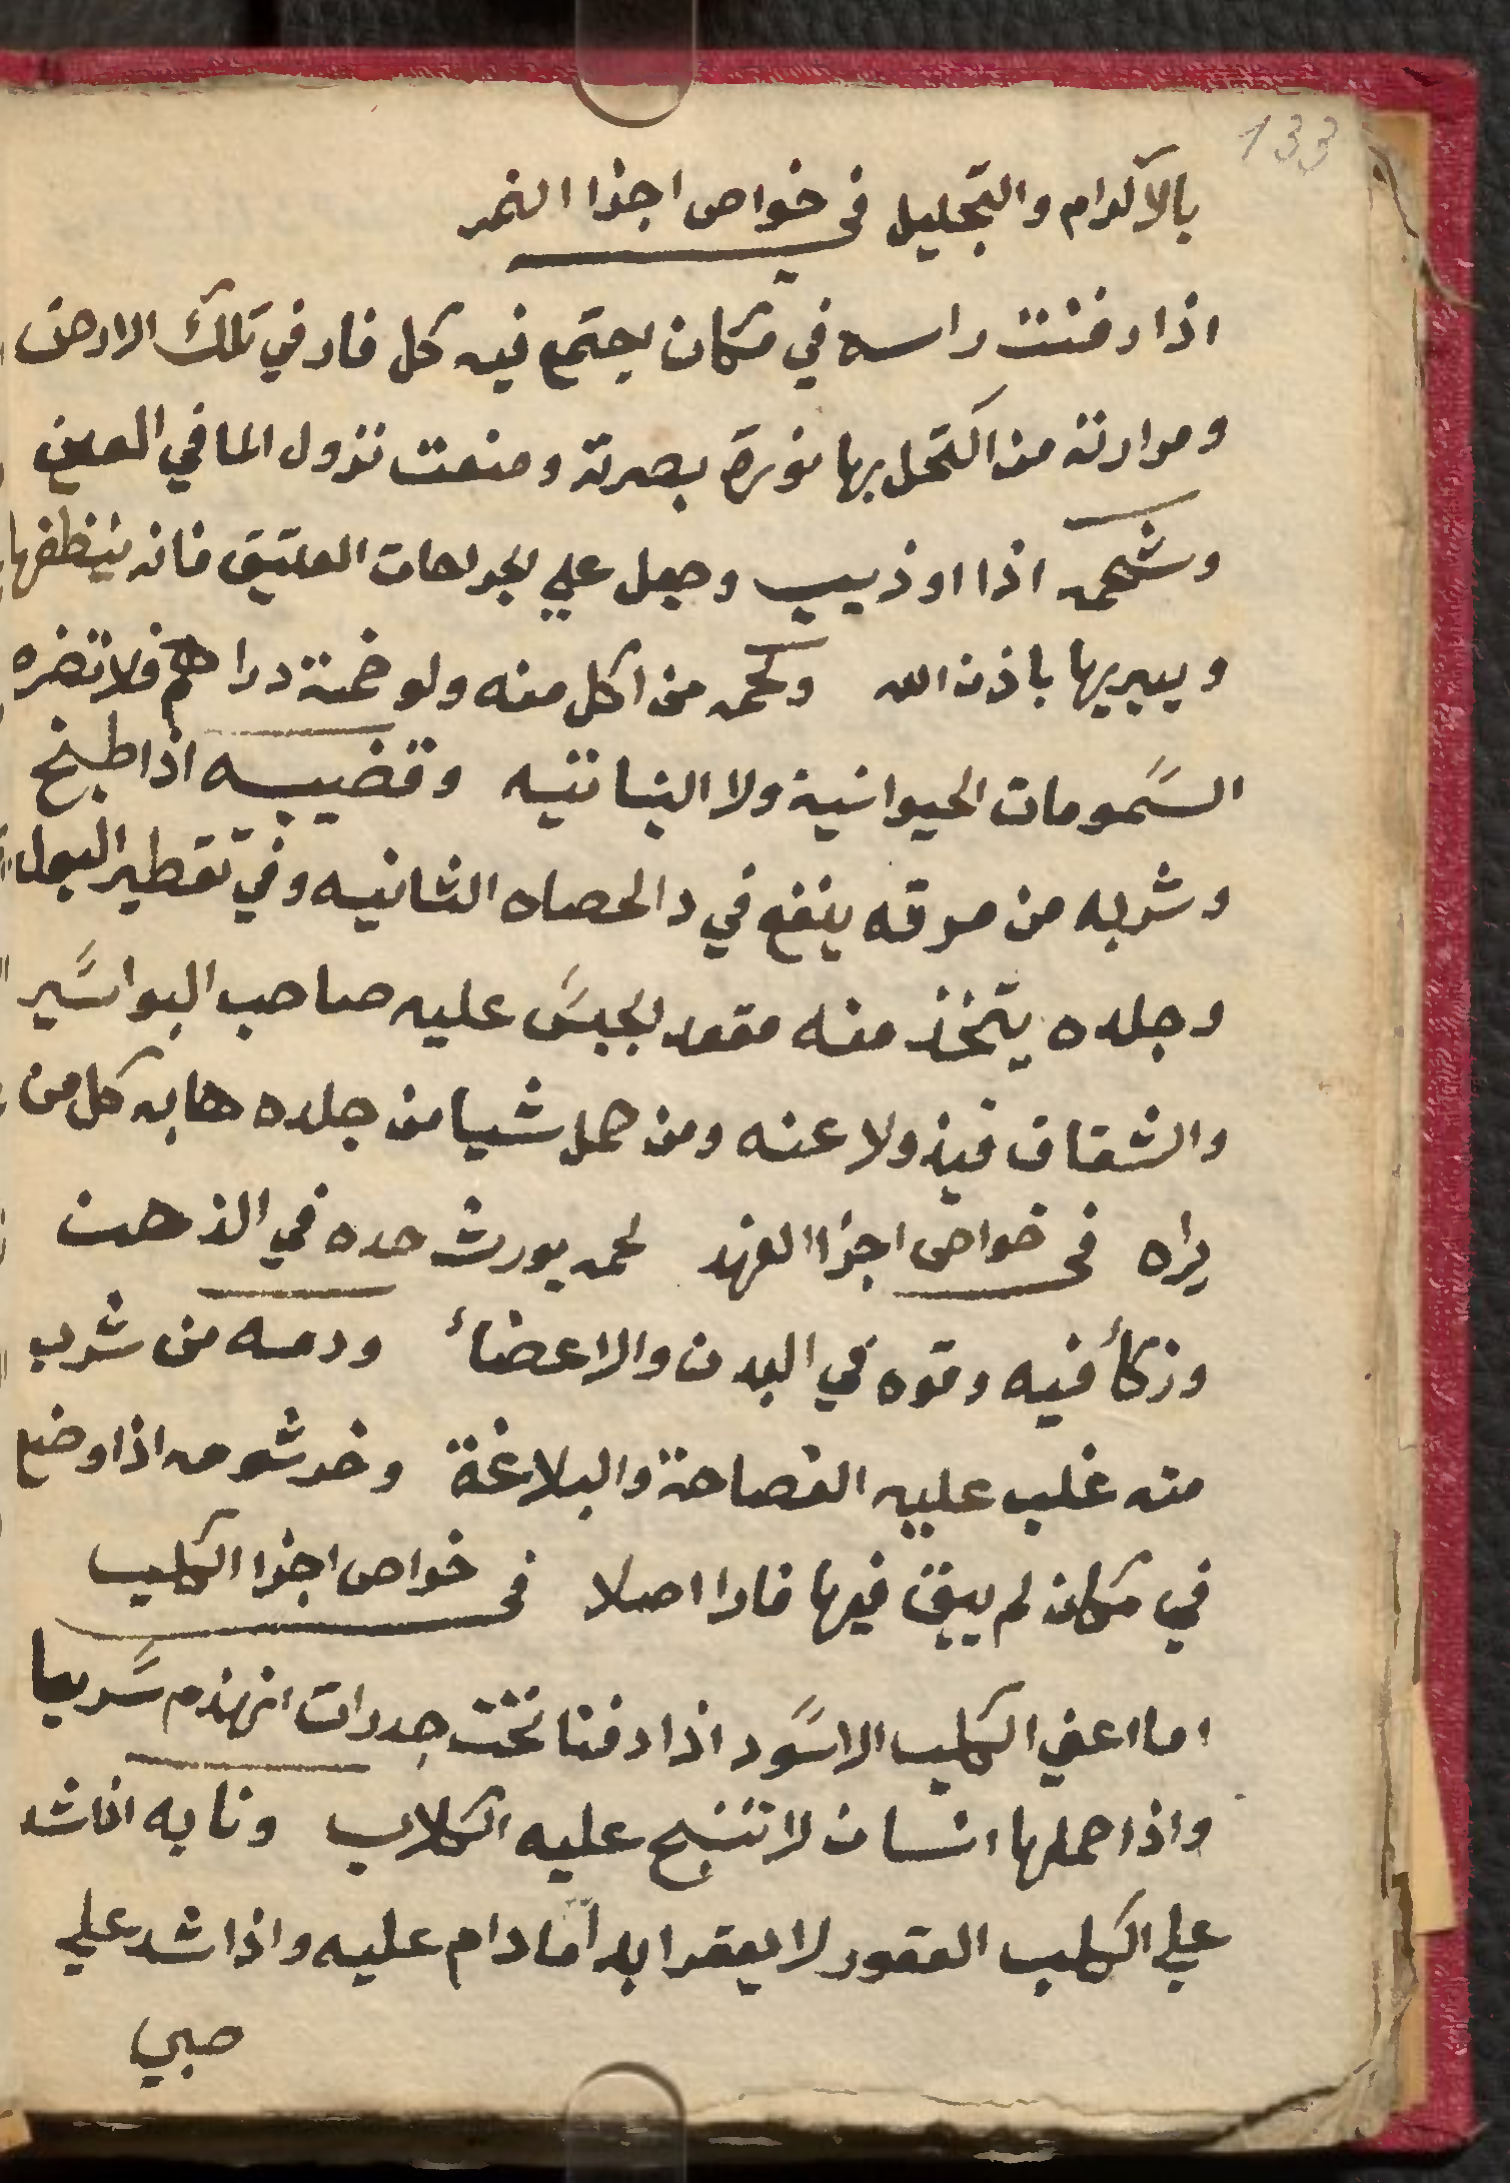 133
بالاكرام والتبجليل في خواص اجزا النمر
اذا دفنت راسه في مكان يجتمع فيه كل فار في تلك الارض
ومرارته من اكتحل بها نورة بصرته ومنعت نزول الما في العين
وشحمه اذا اوذيب وجعل علي الجراحات العتيق فانه ينظفها
ويبريها باذن الله ولحمه من اكل منه ولو خمسة دراهم فلا تضره
السمومات الحيوانية ولا النباتيه وقضيبه اذا طبخ
وشربه من مرقه ينفع في د الحصاه الثانيه وفي تقطير البول
وجلده يتخذ منه مقعد لجبس عليه صاحب البواسير
والشقاق فيزولا عنه ومن حمل شيا من جلده هابه كل من
يراه في خواص اجزا الفهد لحمه يورث حده في الذهن
وزكأ فيه وقوه في البدن والاعضاء ودمه من شرب
منه غلب عليه الفصاحة والبلاغة وخرشومه اذا وضع
في مكان لم يبقي فيها فارا اصلا في خواص اجزا الكلب
اما اعين الكلب الاسود اذا دفنا تحت جدرات انهدم سريعا
واذا حملها انسان لا تنبح عليه الكلاب ونابه اذا شد
علي الكلب العقور لا يعقر ابدا ما دام عليه واذا شد علي
صبي